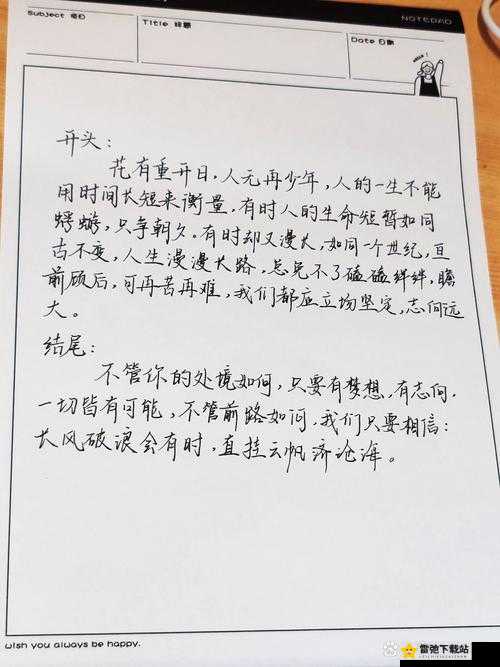 Subject 科目
Title 标题
NOTEPAD
Date 日期
开头：
花有重开日，人元再少年，人的一生不能
用时间长短来衡量，有时人的生命短暂如同
蜉蝣，只争朝夕。有时却又漫长，如同一个世纪，亘
古不变，人生漫漫长路，总免不了磕磕绊绊，瞻
前顾后，可再苦再难，我们都应立场坚定，志向远
大。
结尾：
不管你的处境如何，只要有梦想，有志向，
一切皆有可能，不管前路如何，我们只要相信：
长风破浪会有时，直挂云帆济沧海。
wish you always be happy.
雷弛下载站